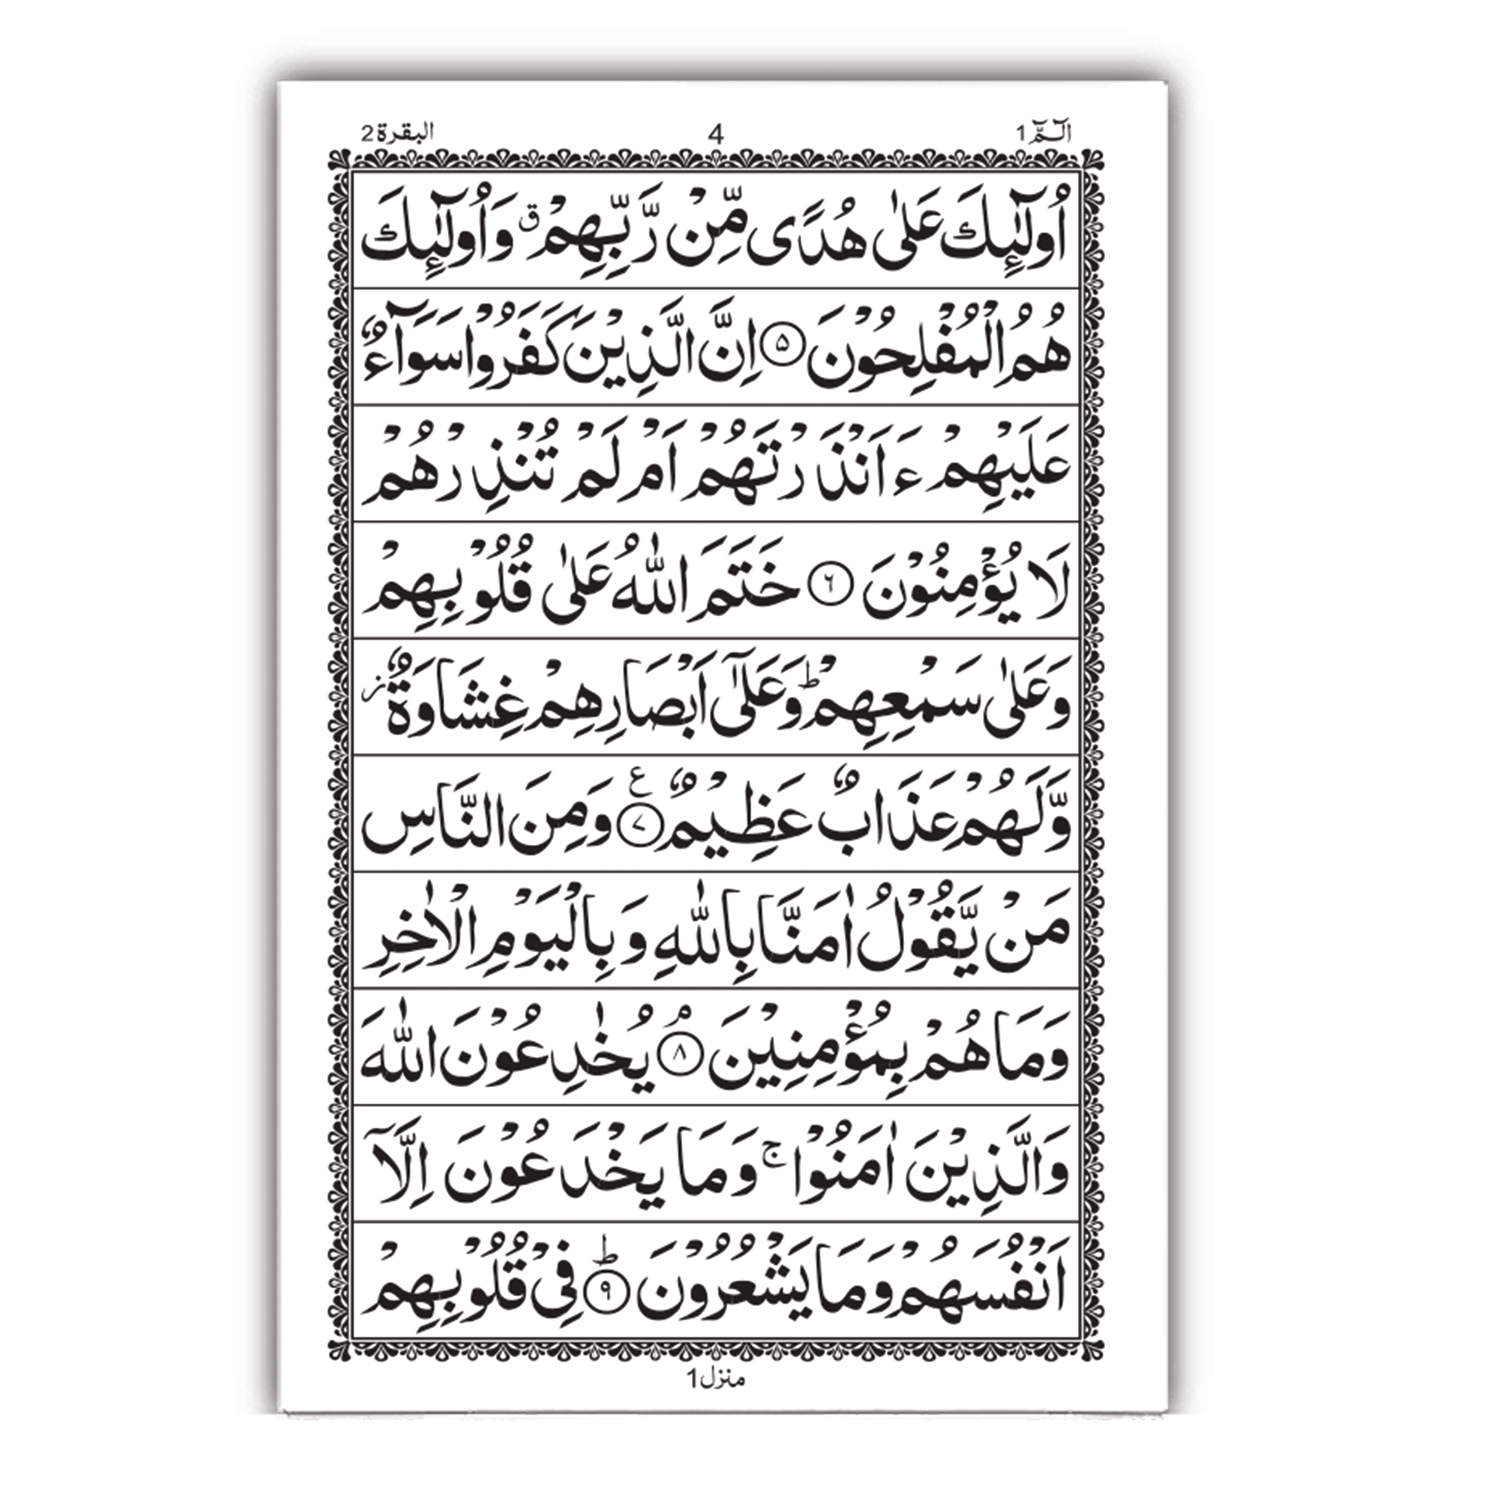 الٓمّٓ 1 4 البقرة 2
اُولٰٓئِكَ عَلٰى هُدًى مِّنْ رَّبِّهِمْ ۗ وَاُولٰٓئِكَ
هُمُ الْمُفْلِحُوْنَ ۵ اِنَّ الَّذِيْنَ كَفَرُوْا سَوَآءٌ
عَلَيْهِمْ ءَاَنْذَرْتَهُمْ اَمْ لَمْ تُنْذِرْهُمْ
لَا يُؤْمِنُوْنَ ۶ خَتَمَ اللّٰهُ عَلٰى قُلُوْبِهِمْ
وَعَلٰى سَمْعِهِمْ ؕ وَعَلٰٓى اَبْصَارِهِمْ غِشَاوَةٌ ز
وَّلَهُمْ عَذَابٌ عَظِيْمٌ ۷ ع وَمِنَ النَّاسِ
مَنْ يَّقُوْلُ اٰمَنَّا بِاللّٰهِ وَبِالْيَوْمِ الْاٰخِرِ
وَمَا هُمْ بِمُؤْمِنِيْنَ ۘ ۸ يُخٰدِعُوْنَ اللّٰهَ
وَالَّذِيْنَ اٰمَنُوْا ۚ وَمَا يَخْدَعُوْنَ اِلَّاۤ
اَنْفُسَهُمْ وَمَا يَشْعُرُوْنَ ؕ ۹ فِيْ قُلُوْبِهِمْ
منزل 1